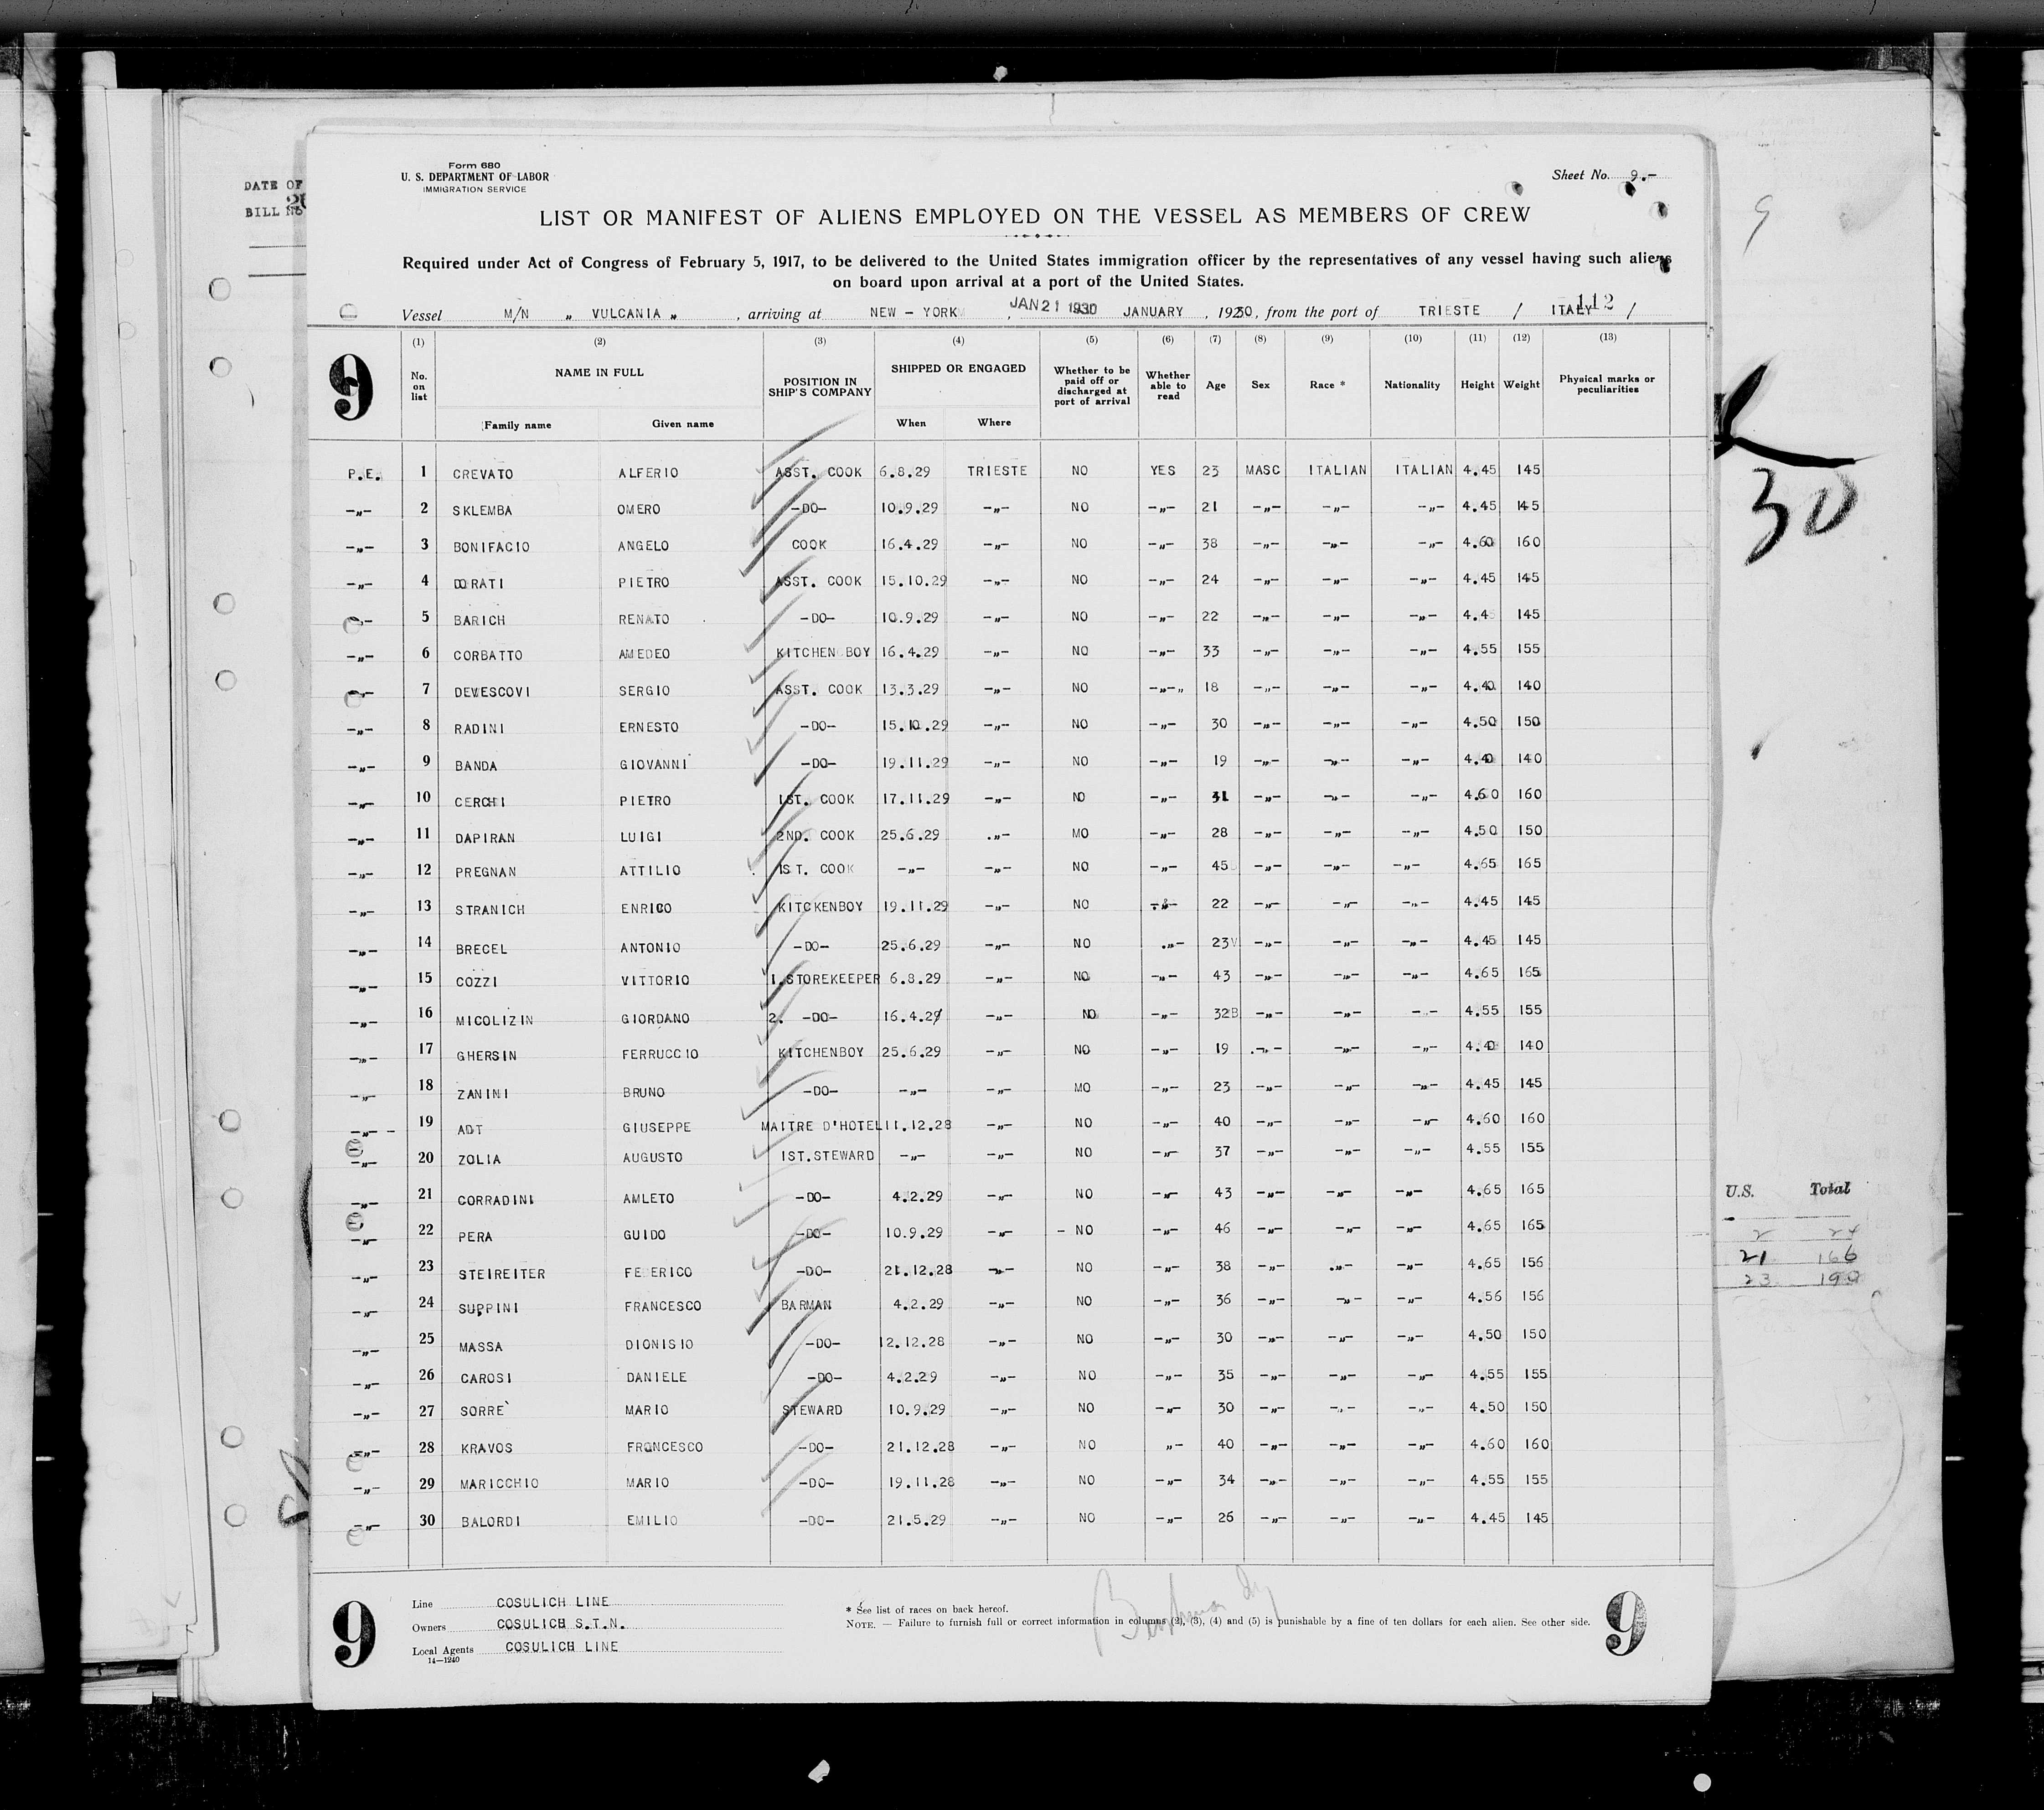 DATE OF
BILL No
Form 680
U. S. DEPARTMENT OF LABOR
IMMIGRATION SERVICE
Sheet No. 9.-
9
LIST OR MANIFEST OF ALIENS EMPLOYED ON THE VESSEL AS MEMBERS OF CREW
Required under Act of Congress of February 5, 1917, to be delivered to the United States immigration officer by the representatives of any vessel having such aliens
on board upon arrival at a port of the United States.
112
Vessel M/N „ VULCANIA „ , arriving at NEW - YORK , JAN 21 1930 JANUARY , 1930, from the port of TRIESTE / ITALY /
9
(1) (2) (3) (4) (5) (6) (7) (8) (9) (10) (11) (12) (13)
No. on list NAME IN FULL POSITION IN SHIP'S COMPANY SHIPPED OR ENGAGED Whether to be paid off or discharged at port of arrival Whether able to read Age Sex Race * Nationality Height Weight Physical marks or peculiarities
Family name Given name When Where
P.E. 1 CREVATO ALFERIO ASST. COOK 6.8.29 TRIESTE NO YES 23 MASC ITALIAN ITALIAN 4.45 145
-„- 2 SKLEMBA OMERO -DO- 10.9.29 -„- NO -„- 21 -„- -„- -„- 4.45 145
-„- 3 BONIFACIO ANGELO COOK 16.4.29 -„- NO -„- 38 -„- -„- -„- 4.60 160
-„- 4 DORATI PIETRO ASST. COOK 15.10.29 -„- NO -„- 24 -„- -„- -„- 4.45 145
- 5 BARICH RENATO -DO- 10.9.29 -„- NO -„- 22 -„- -„- -„- 4.45 145
-„- 6 CORBATTO AMEDEO KITCHEN BOY 16.4.29 -„- NO -„- 33 -„- -„- -„- 4.55 155
-„- 7 DEVESCOVI SERGIO ASST. COOK 13.3.29 -„- NO -„-„ 18 -„- -„- -„- 4.40 140
-„- 8 RADINI ERNESTO -DO- 15.10.29 -„- NO -„- 30 -„- -„- -„- 4.50 150
-„- 9 BANDA GIOVANNI -DO- 19.11.29 -„- NO -„- 19 -„- -„- -„- 4.40 140
-„- 10 CERCHI PIETRO 1ST. COOK 17.11.29 -„- NO -„- 31 -„- -„- -„- 4.60 160
-„- 11 DAPIRAN LUIGI 2ND. COOK 25.6.29 .„- MO -„- 28 -„- -„- -„- 4.50 150
-„- 12 PREGNAN ATTILIO 1ST. COOK -„- -„- NO -„- 45 -„- -„- -„- 4.65 165
-„- 13 STRANICH ENRICO KITCKENBOY 19.11.29 -„- NO -„- 22 -„- -„- -„- 4.45 145
-„- 14 BRECEL ANTONIO -DO- 25.6.29 -„- NO .„- 23 -„- -„- -„- 4.45 145
-„- 15 COZZI VITTORIO 1.STOREKEEPER 6.8.29 -„- NO -„- 43 -„- -„- -„- 4.65 165
-„- 16 MICOLIZIN GIORDANO 2. -DO- 16.4.29 -„- NO -„- 32 -„- -„- -„- 4.55 155
-„- 17 GHERSIN FERRUCCIO KITCHENBOY 25.6.29 -„- NO -„- 19 -„- -„- -„- 4.40 140
-„- 18 ZANINI BRUNO -DO- -„- -„- MO -„- 23 -„- -„- -„- 4.45 145
-„- - 19 ADT GIUSEPPE MAITRE D'HOTEL 11.12.28 -„- NO -„- 40 -„- -„- -„- 4.60 160
-„- 20 ZOLIA AUGUSTO 1ST.STEWARD -„- -„- NO -„- 37 -„- -„- -„- 4.55 155
-„- 21 CORRADINI AMLETO -DO- 4.2.29 -„- NO -„- 43 -„- -„- -„- 4.65 165
-„- 22 PERA GUIDO -DO- 10.9.29 -„- - NO -„- 46 -„- -„- -„- 4.65 165
-„- 23 STEIREITER FEDERICO -DO- 21.12.28 -„- NO -„- 38 -„- .„- -„- 4.65 156
-„- 24 SUPPINI FRANCESCO BARMAN 4.2.29 -„- NO -„- 36 -„- -„- -„- 4.56 156
-„- 25 MASSA DIONISIO -DO- 12.12.28 -„- NO -„- 30 -„- -„- -„- 4.50 150
-„- 26 CAROSI DANIELE -DO- 4.2.29 -„- NO -„- 35 -„- -„- -„- 4.55 155
-„- 27 SORRE` MARIO STEWARD 10.9.29 -„- NO -„- 30 -„- -„- -„- 4.50 150
-„- 28 KRAVOS FRONCESCO -DO- 21.12.28 -„- NO „- 40 -„- -„- -„- 4.60 160
-„- 29 MARICCHIO MARIO -DO- 19.11.28 -„- NO -„- 34 -„- -„- -„- 4.55 155
-„- 30 BALORDI EMILIO -DO- 21.5.29 -„- NO -„- 26 -„- -„- -„- 4.45 145
30
U.S. Total
2 24
21 166
23 190
9
Line COSULICH LINE
Owners COSULICH S.T.N.
Local Agents COSULICH LINE
14—1240
* See list of races on back hereof.
NOTE. — Failure to furnish full or correct information in columns (2), (3), (4) and (5) is punishable by a fine of ten dollars for each alien. See other side.
9